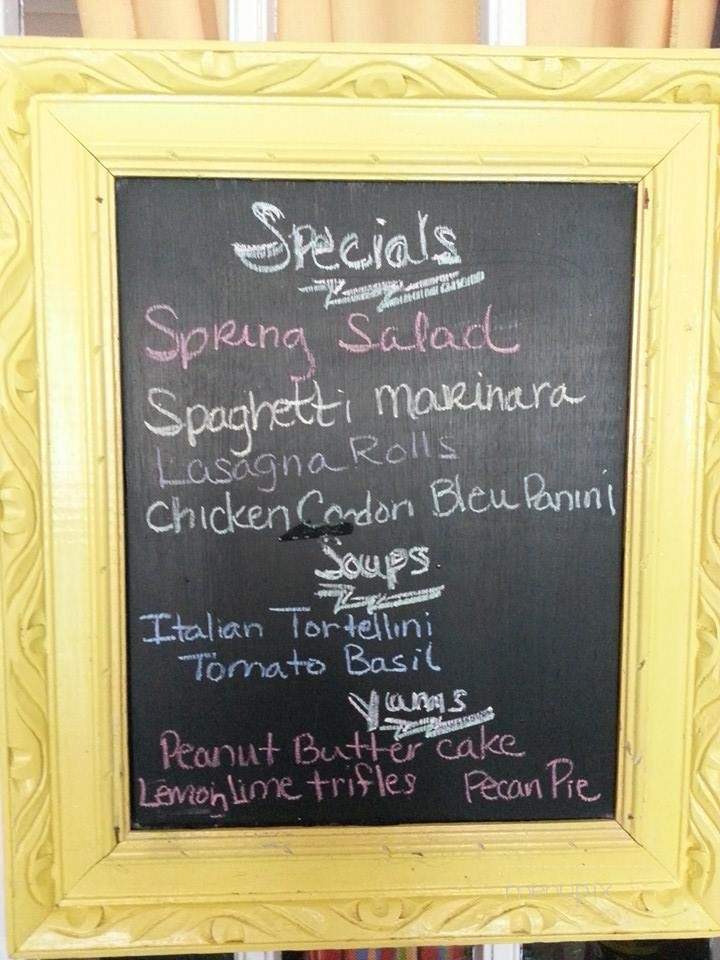 Specials
Spring Salad
Spaghetti marinara
Lasagna Rolls
Chicken Cordon Bleu Panini
Soups
Italian Tortellini
Tomato Basil
Yums
Peanut Butter cake
Lemon lime trifles Pecan Pie
menupix